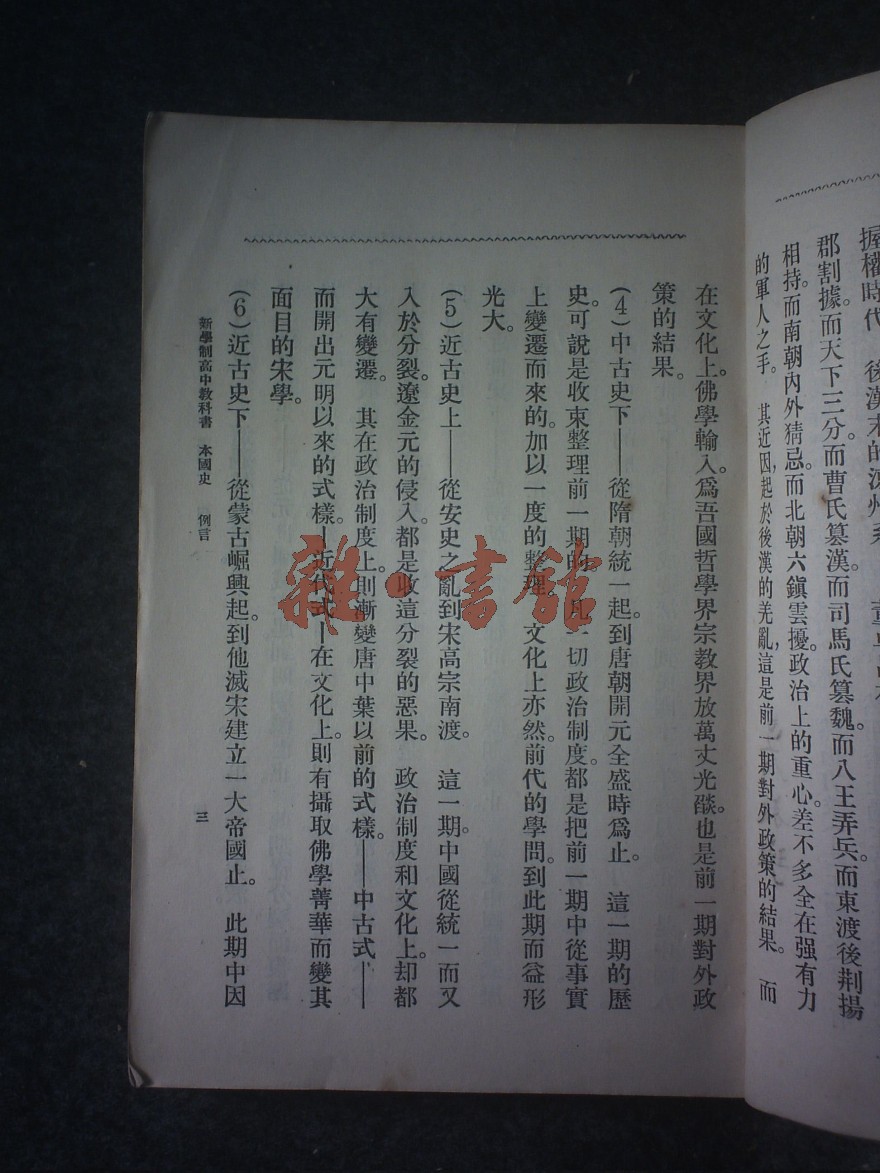 握權時代
郡割據。而天下三分。而曹氏篡漢。而司馬氏篡魏。而八王弄兵。而東渡後荆揚
相持。而南朝內外猜忌。而北朝六鎮雲擾。政治上的重心。差不多全在强有力
的軍人之手。 其近因,起於後漢的羌亂,這是前一期對外政策的結果。 而
在文化上。佛學輸入。爲吾國哲學界宗教界放萬丈光燄。也是前一期對外政
策的結果。
(4)中古史下——從隋朝統一起。到唐朝開元全盛時爲止。 這一期的歷
史。可說是收束整理前一期的。凡一切政治制度。都是把前一期中從事實
上變遷而來的。加以一度的整理。 文化上亦然。前代的學問。到此期而益形
光大。
(5)近古史上——從安史之亂到宋高宗南渡。 這一期。中國從統一而又
入於分裂。遼金元的侵入。都是收這分裂的惡果。 政治制度和文化上。却都
大有變遷。 其在政治制度上。則漸變唐中葉以前的式樣。——中古式——
而開出元明以來的式樣。—近代式—在文化上。則有攝取佛學菁華而變其
面目的宋學。
(6)近古史下——從蒙古崛興起。到他滅宋建立一大帝國止。 此期中因
新學制高中教科書 本國史 例言
三
雜·書館